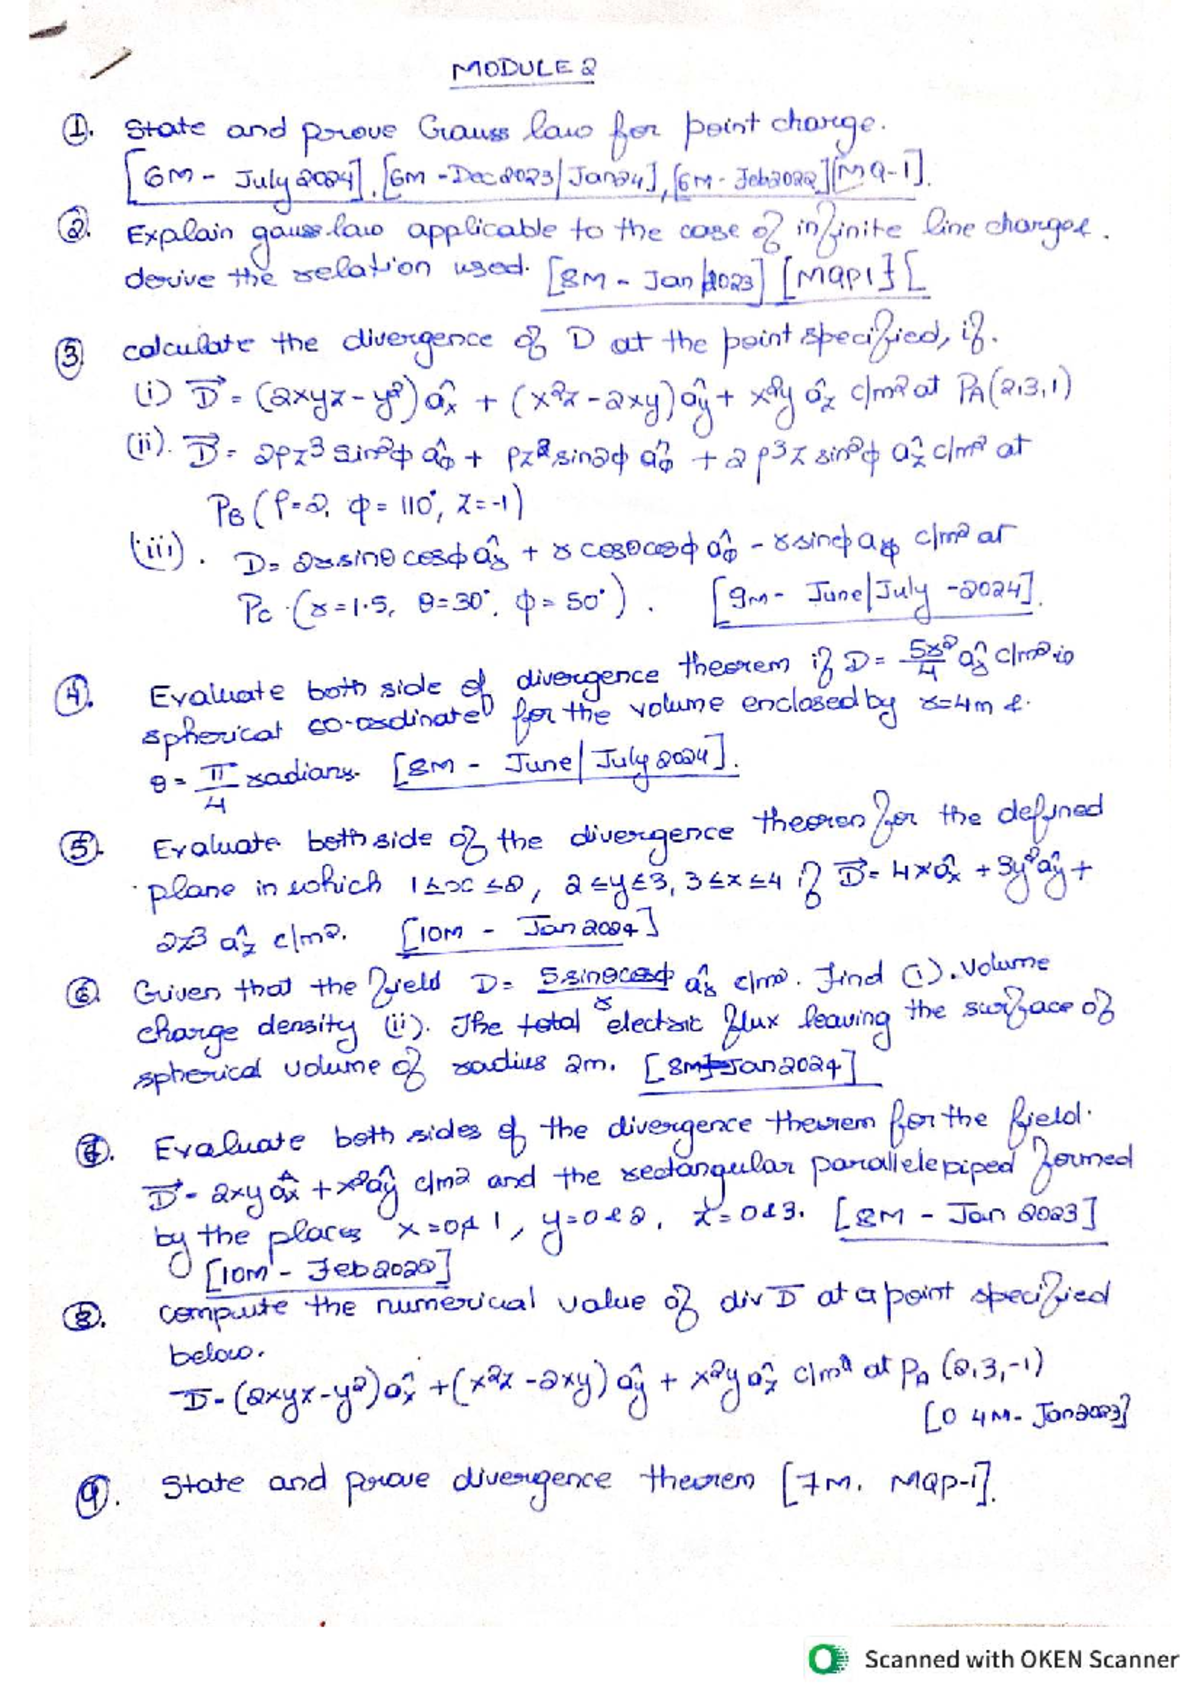 MODULE 2
①. State and prove Gauss law for point charge.
[6M - July 2024], [6M - Dec 2023/Jan 24], [6M - Feb 2022] [MQ-1].
②. Explain gauss law applicable to the case of infinite line charges.
derive the relation used. [8M - Jan/2023] [MQP1} [
③ calculate the divergence of D at the point specified, if.
(i) D⃗ = (2xyz - y²) âx + (x²z - 2xy) ây + x²y âz c/m² at PA(2,3,1)
(ii). D⃗ = 2ρz³ sin²ϕ âϕ + ρz² sin2ϕ âϕ + 2ρ³z sin²ϕ âz c/m² at
PB (ρ=2, ϕ = 110°, z=-1)
(iii). D = 2r sinθ cosϕ âr + r cosθ cosϕ âϕ - r sinϕ aϕ c/m² at
Pc (r = 1.5, θ = 30°, ϕ = 50°). [9M - June/July - 2024].
④. Evaluate both side of divergence theorem if D = 5r²/4 âr c/m² in
spherical co-ordinate for the volume enclosed by r=4m &.
θ = π/4 radians. [8M - June/July 2024].
⑤. Evaluate both side of the divergence theoren for the defined
plane in which 1≤x≤2, 2≤y≤3, 3≤x≤4 if D⃗ = 4xâx + 3y²ây +
2z³ âz c/m². [10M - Jan 2024]
⑥ Given that the field D = 5 sinθcosϕ/r âr c/m². Find (i). Volume
charge density (ii). The total electric flux leaving the surface of
spherical volume of radius 2m. [8M - Jan 2024]
⑦. Evaluate both sides of the divergence theurem for the field.
D⃗ = 2xy âx + x² ây c/m² and the rectangular parallelepiped formed
by the places x=0 & 1, y=0 & 2, z=0 & 3. [8M - Jan 2023]
[10M - Feb 2020]
⑧. compute the numerical value of div D at a point specified
below.
D = (2xyz - y²) âx + (x²z - 2xy) ây + x²y âz c/m² at PA (2,3,-1)
[0 4M - Jan 2023]
⑨. State and prove divergence theurem [7M. MQP-1].
Scanned with OKEN Scanner